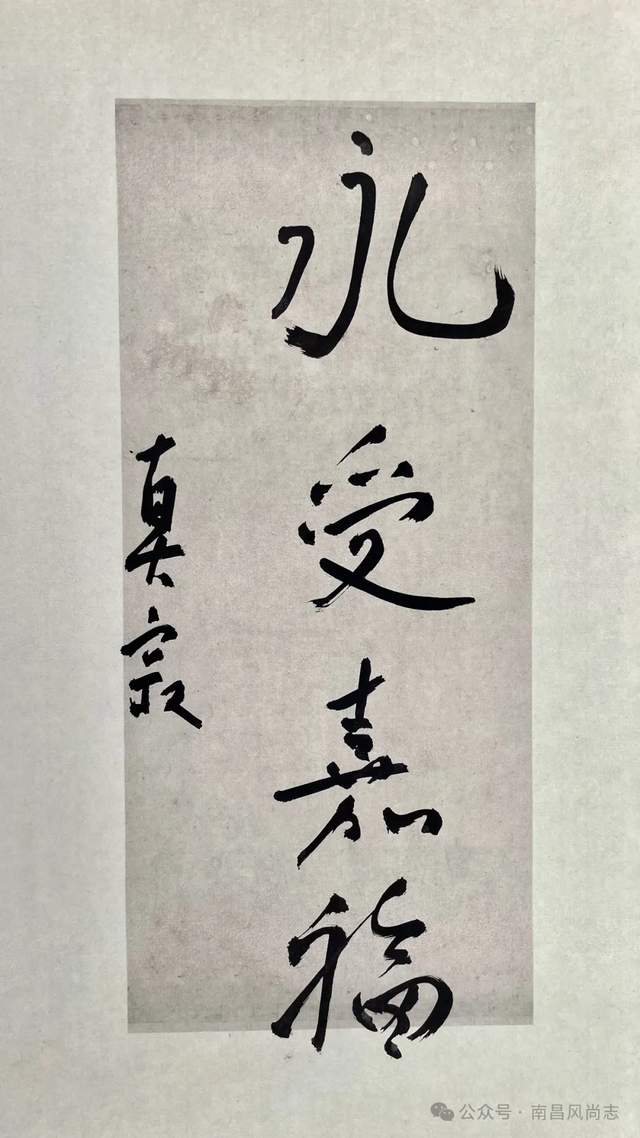 永受嘉福
真寂
公众号·南昌风尚志